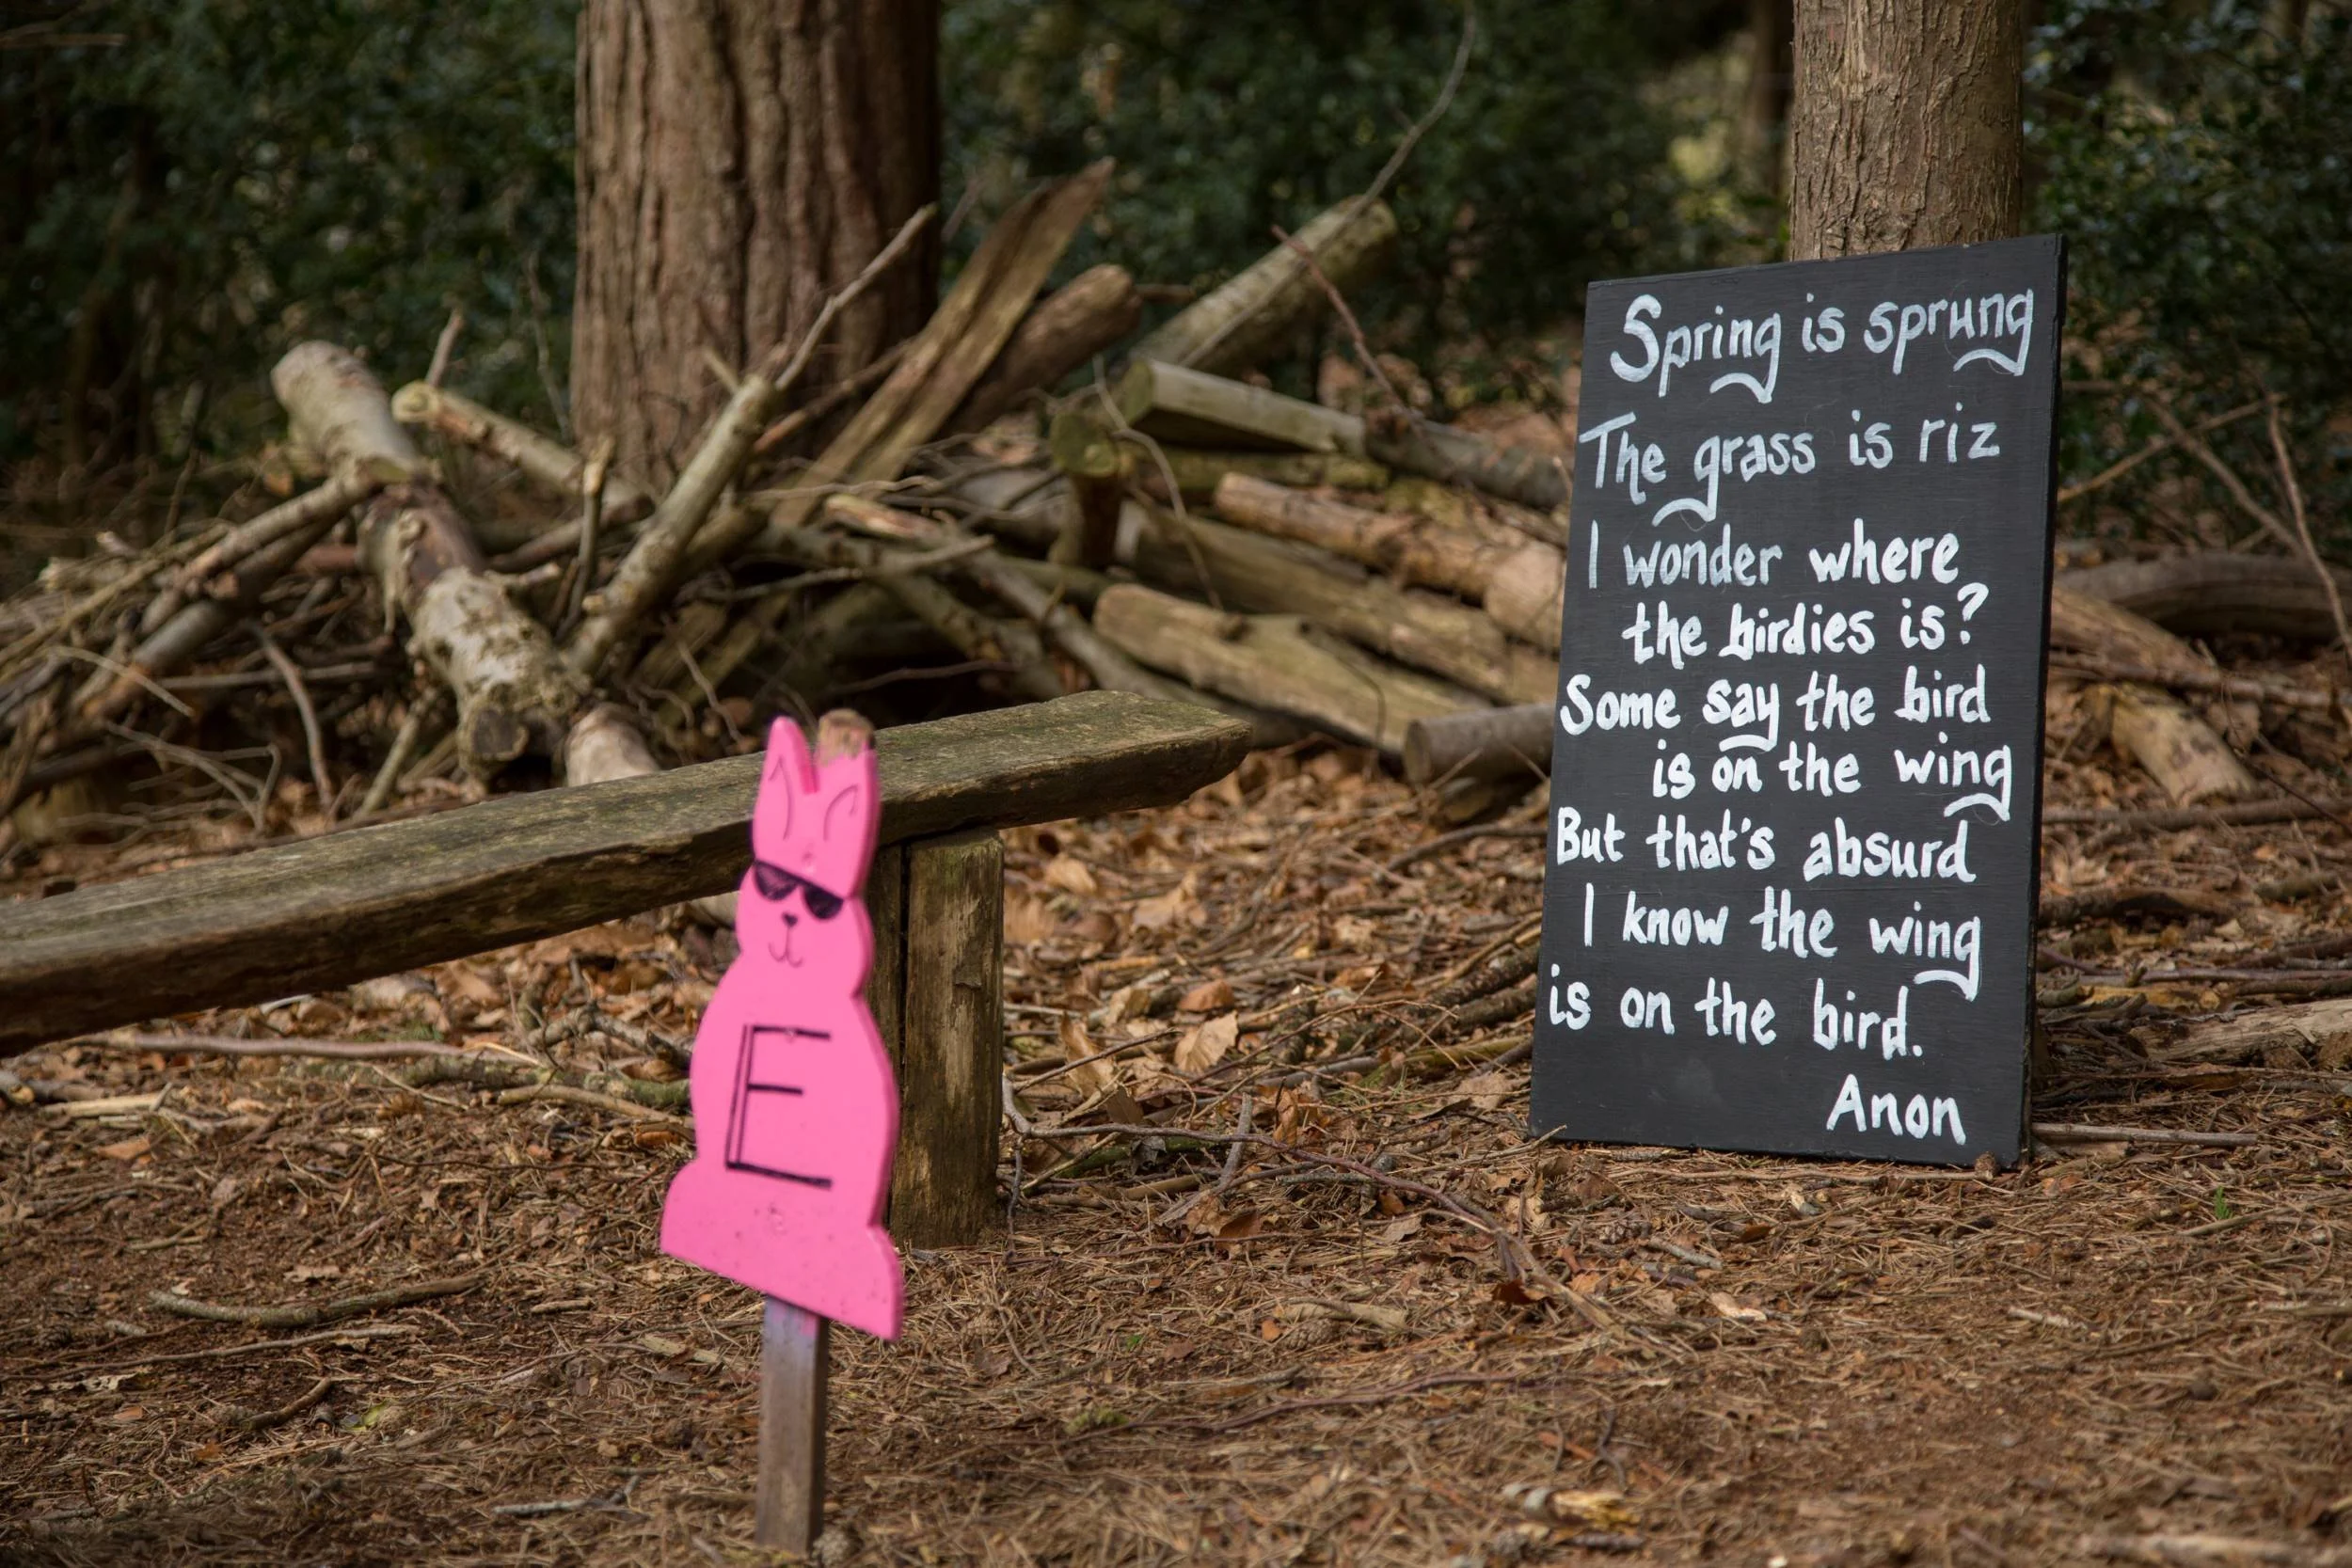 Spring is sprung
The grass is riz
I wonder where
the birdies is?
Some say the bird
is on the wing
But that's absurd
I know the wing
is on the bird.
Anon
E